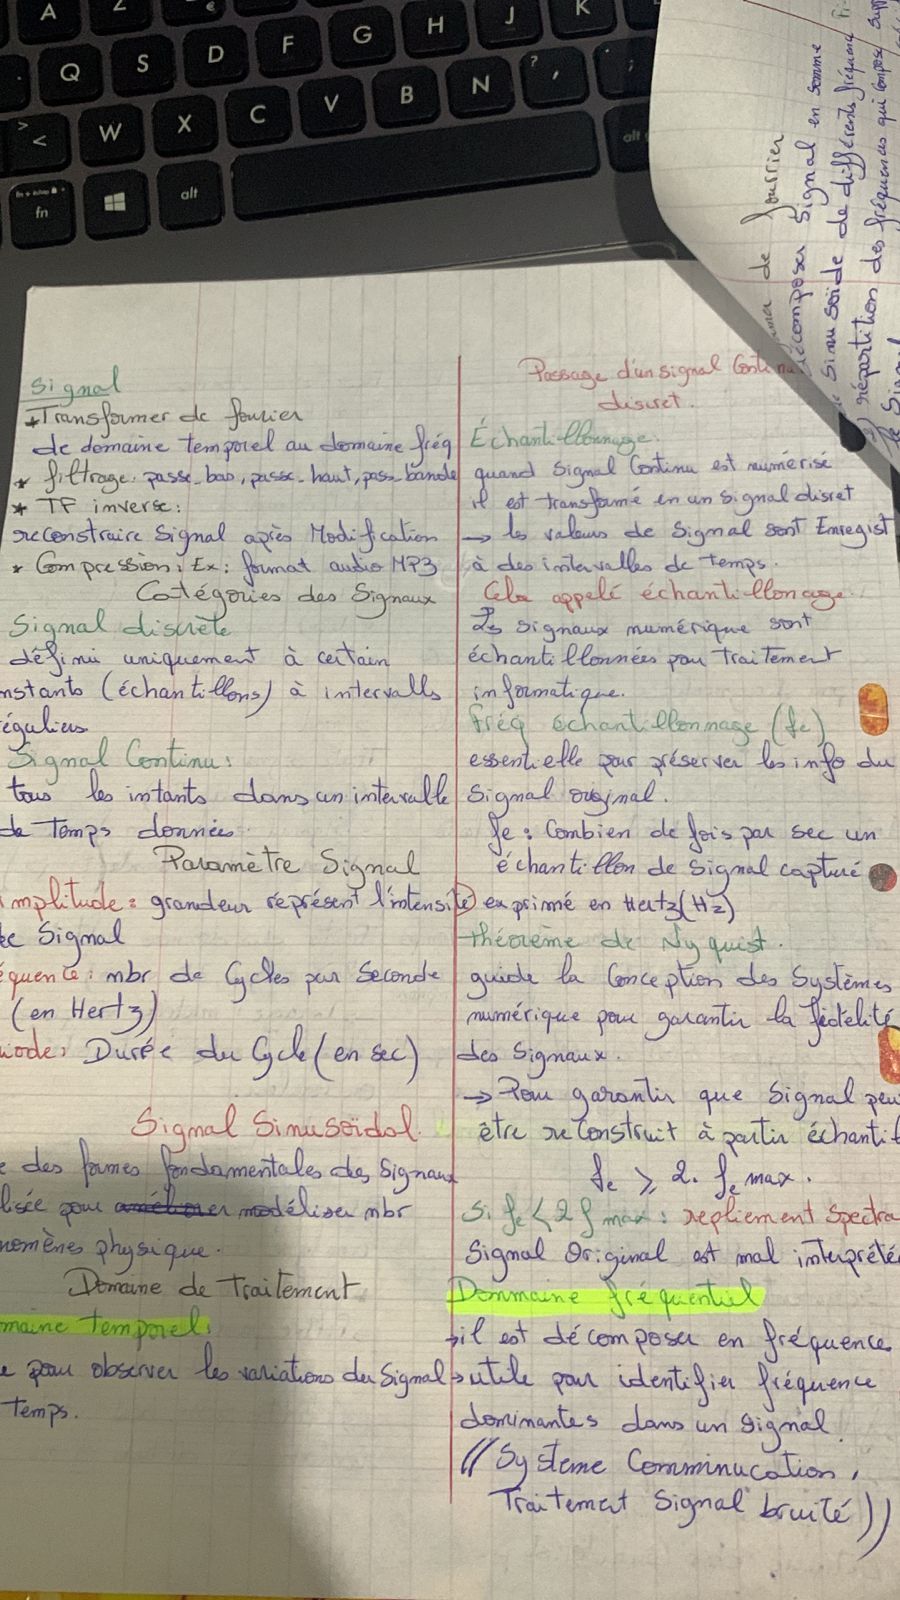 Signal
*Transformer de fourier
de domaine temporel au domaine fréq
* filtrage: passe-bas, passe-haut, pass-bande
* TF inverse:
reconstruire Signal après Modification
* Compression: Ex: format audio MP3
Catégories des Signaux
Signal discrète
définni uniquement à certain
nstants (échantillons) à intervalls
éguliers
Signal Continu:
tous les intants dans un intervalle
de Temps données
Paramètre Signal
mplitude: grandeur représent l'intensité
Signal
équence: mbr de Cycles par Seconde
(en Hertz)
iode: Durée du Cycle (en sec)
Signal Sinusoïdal.
des formes fondamentales des Signaux
lisée pour modéliser mbr
nomènes physique.
Domaine de Traitement
maine temporel:
e pour observer les variations du Signal
Temps.
Passage d'un signal Conti
discret.
Échantillonnage
quand Signal Continu est numérisé
il est transformé en un signal discret
→ les valeurs de Signal sont Enregist
à des intervalles de Temps.
Cela appelé échantillonage.
Les signaux numérique sont
échantillonnées pou Traitement
informatique.
fréq échantillonnage (fe)
essentielle pour préserver les info du
Signal original.
fe: Combien de fois par sec un
échantillon de Signal capturé
exprimé en Hertz(Hz)
théorème de Nyquist.
guide la Conception des Systèmes
numérique pour garantir la fidélité
des Signaux.
→ Pour garantir que Signal peu
être reconstruit à partir échantil
fe ⩾ 2. fe max.
Si fe < 2 f max: repliement Spectra
Signal Original est mal interprété
Dommaine fréquentiel
→ il est décomposer en fréquence
→ utile pour identifier fréquence
dominantes dans un signal.
((Systeme Comminucation,
Traitement Signal bruité))
de fourrier
décomposer Signal en somme
de sinusoide de différents fréquenc
répartition des fréquences qui compose
Signal